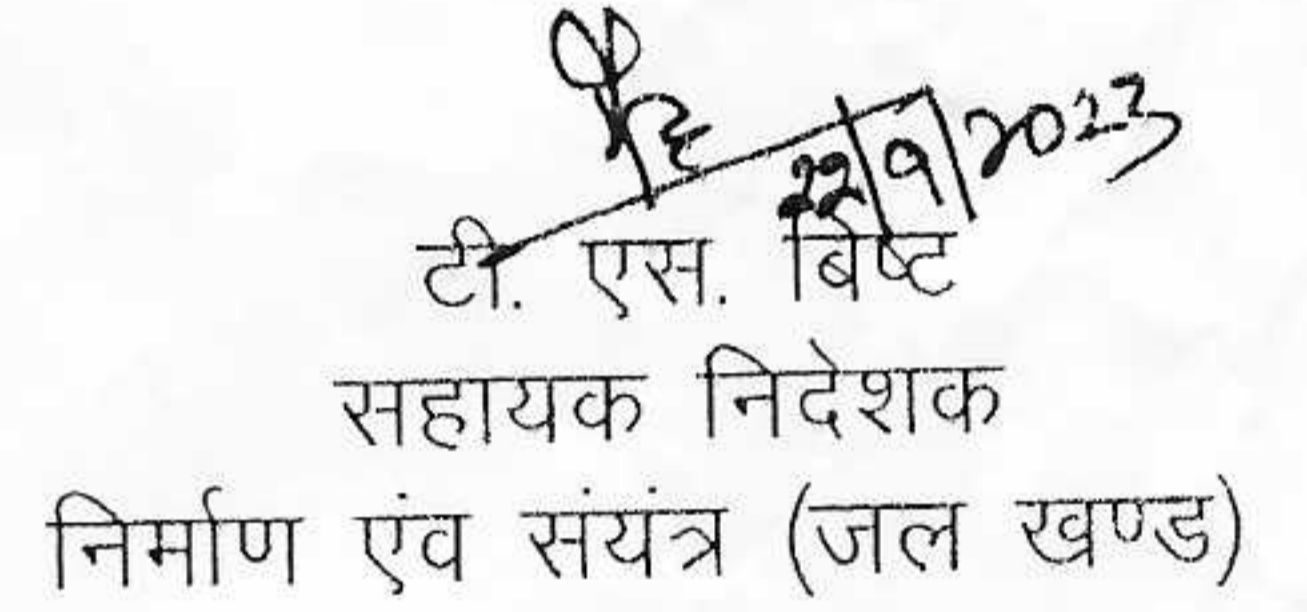 22/9/2023
टी. एस. बिष्ट
सहायक निदेशक
निर्माण एंव संयंत्र (जल खण्ड)